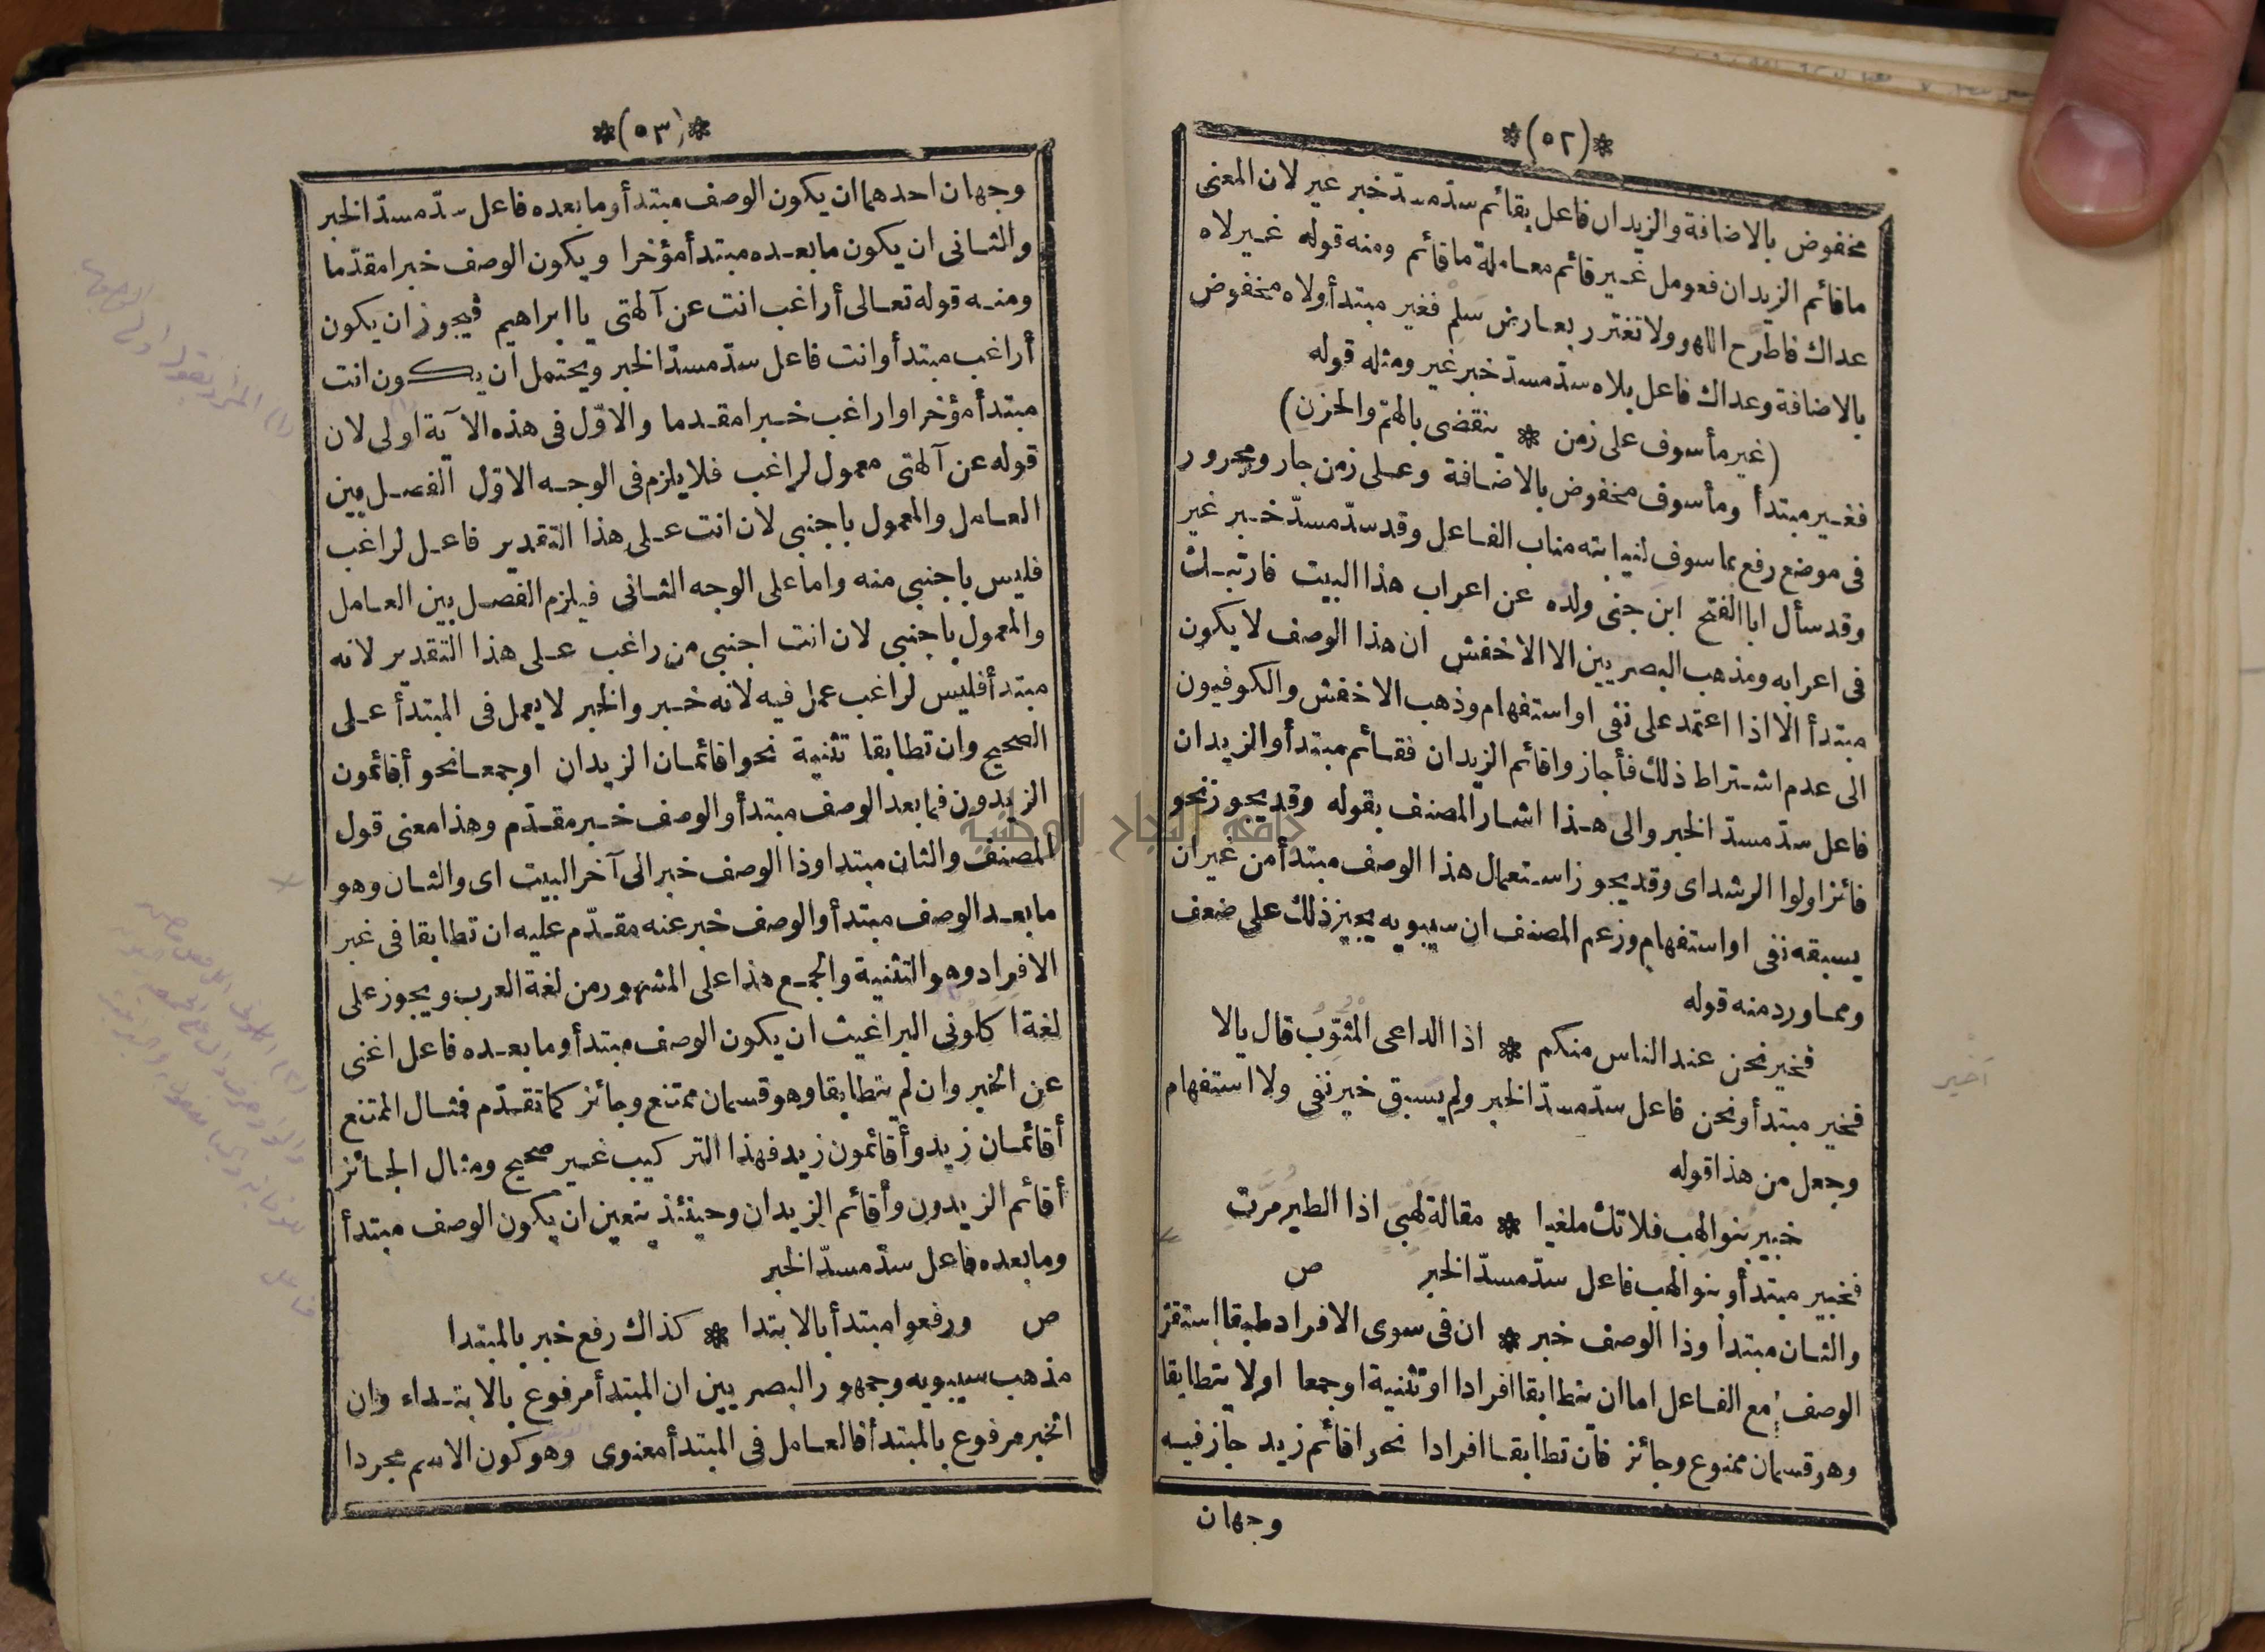 *(٥٢)*
مخفوض بالاضافة والزيدان فاعل بقائم سدّ مسدّ خبر غير لان المعنى
ما قائم الزيدان فعومل غير قائم معاملة ما قائم ومنه قوله غير لاه
عداك فاطّرح اللهو ولا تغترر بعارض سلم فغير مبتدأ ولاه مخفوض
بالاضافة وعداك فاعل بلاه سدّ مسدّ خبر غير ومثله قوله
(غير مأسوف على زمن * ينقضى بالهمّ والحزن)
فغير مبتدأ ومأسوف مخفوض بالاضافة وعلى زمن جار ومجرور
فى موضع رفع بماسوف لنيابته مناب الفاعل وقد سدّ مسدّ خبر غير
وقد سأل ابا الفتح ابن جنى ولده عن اعراب هذا البيت فارتبك
فى اعرابه ومذهب البصريين الا الاخفش ان هذا الوصف لا يكون
مبتدأ الا اذا اعتمد على نفى او استفهام وذهب الاخفش والكوفيون
الى عدم اشتراط ذلك فأجازوا قائم الزيدان فقائم مبتدأ والزيدان
فاعل سدّ مسدّ الخبر والى هذا اشار المصنف بقوله وقد يجوز نحو
فائز اولوا الرشد اى وقد يجوز استعمال هذا الوصف مبتدأ من غير ان
يسبقه نفى او استفهام وزعم المصنف ان سيبويه يجيز ذلك على ضعف
ومما ورد منه قوله
فخير نحن عند الناس منكم * اذا الداعى المثوّب قال يالا
فخير مبتدأ ونحن فاعل سدّ مسدّ الخبر ولم يسبق خير نفى ولا استفهام
وجعل من هذا قوله
خبير بنو لهب فلا تك ملغيا * مقالة لهبى اذا الطير مرّت
فخبير مبتدأ وبنو لهب فاعل سدّ مسدّ الخبر ص
والثان مبتدأ وذا الوصف خبر * ان فى سوى الافراد طبقا استقرّ
الوصف مع الفاعل اما ان يتطابقا افرادا او تثنية او جمعا او لا يتطابقا
وهو قسمان ممنوع وجائز فان تطابقا افرادا نحو اقائم زيد جاز فيه
وجهان
*(٥٣)*
وجهان احدهما ان يكون الوصف مبتدأ وما بعده فاعل سدّ مسدّ الخبر
والثانى ان يكون ما بعده مبتدأ مؤخرا ويكون الوصف خبرا مقدّما
ومنه قوله تعالى أراغب انت عن آلهتى يا ابراهيم فيجوز ان يكون
أراغب مبتدأ وانت فاعل سدّ مسدّ الخبر ويحتمل ان يكون انت
مبتدأ مؤخرا واراغب خبرا مقدما والاوّل فى هذه الآية اولى لان
قوله عن آلهتى معمول لراغب فلا يلزم فى الوجه الاوّل الفصل بين
العامل والمعمول باجنبى لان انت على هذا التقدير فاعل لراغب
فليس باجنبى منه واما على الوجه الثانى فيلزم الفصل بين العامل
والمعمول باجنبى لان انت اجنبى من راغب على هذا التقدير لانه
مبتدأ فليس لراغب عمل فيه لانه خبر والخبر لا يعمل فى المبتدأ على
الصحيح وان تطابقا تثنية نحو اقائمان الزيدان او جمعا نحو أقائمون
الزيدون فما بعد الوصف مبتدأ والوصف خبر مقدّم وهذا معنى قول
المصنف والثان مبتدا وذا الوصف خبر الى آخر البيت اى والثان وهو
ما بعد الوصف مبتدأ والوصف خبر عنه مقدّم عليه ان تطابقا فى غير
الافراد وهو التثنية والجمع هذا على المشهور من لغة العرب ويجوز على
لغة اكلونى البراغيث ان يكون الوصف مبتدأ وما بعده فاعل اغنى
عن الخبر وان لم يتطابقا وهو قسمان ممتنع وجائز كما تقدّم فمثال الممتنع
أقائمان زيد وأقائمون زيد فهذا التركيب غير صحيح ومثال الجائز
أقائم الزيدون وأقائم الزيدان وحينئذ يتعين ان يكون الوصف مبتدأ
وما بعده فاعل سدّ مسدّ الخبر
ص ورفعوا مبتدأ بالابتدا * كذاك رفع خبر بالمبتدا
مذهب سيبويه وجمهور البصريين ان المبتدأ مرفوع بالابتداء وان
الخبر مرفوع بالمبتدأ فالعامل فى المبتدأ معنوى وهو كون الاسم مجردا
جامعة النجاح الوطنية